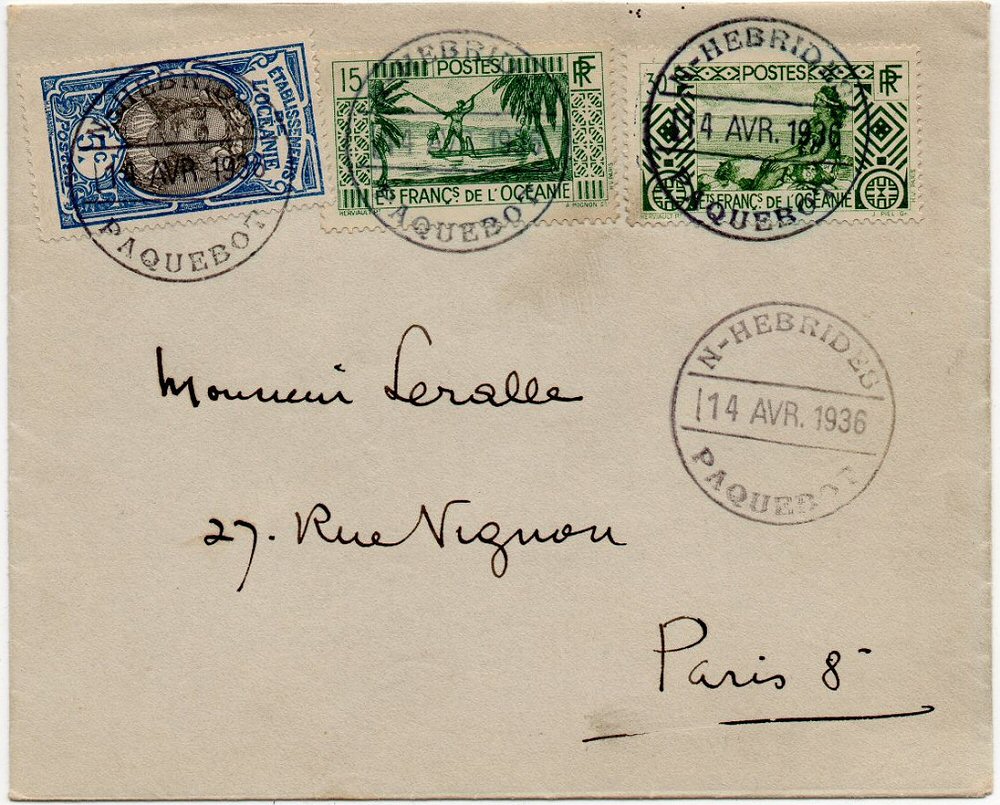 ETABLISSEMENTS
DE
L'OCÉANIE
5c
POSTES
N-HEBRIDES
14 AVR. 1936
PAQUEBOT
15
POSTES
RF
ETS FRANÇS DE L'OCÉANIE
HERVIAULT
J. PIGNON SC.
N-HEBRIDES
14 AVR. 1936
PAQUEBOT
POSTES
RF
ETS FRANÇS DE L'OCÉANIE
HERVIAULT
J. PIEL GR.
N-HEBRIDES
14 AVR. 1936
PAQUEBOT
N-HEBRIDES
14 AVR. 1936
PAQUEBOT
Monsieur Leralle
27. Rue Vignon
Paris 8-